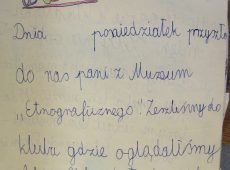 Dnia poniedziałek przyszło
do nas pani z Muzeum
„Etnograficznego". Zeszliśmy do
klubu gdzie oglądaliśmy